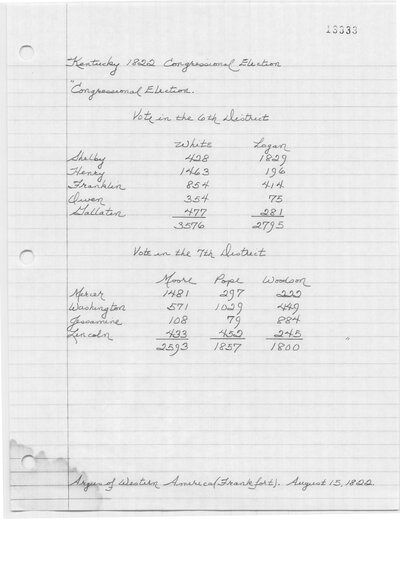 13333
Kentucky 1822 Congressional Election
"Congressional Election.
Vote in the 6th District
White Logan
Shelby 428 1829
Henry 1463 196
Franklin 854 414
Owen 354 75
Gallatin 477 281
3576 2795
Vote in the 7th District
Moore Pope Woodson
Mercer 1481 297 222
Washington 571 1029 449
Jessamine 108 79 884
Lincoln 433 452 245
2593 1857 1800 "
Argus of Western America (Frankfort). August 15, 1822.